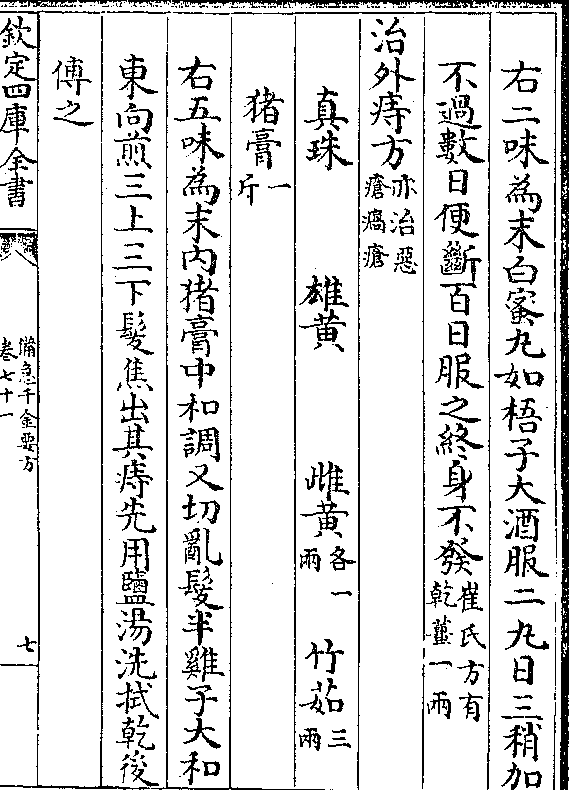 右二味為末白蜜丸如梧子大酒服二丸日三稍加
不過數日便斷百日服之終身不發崔氏方有乾薑一兩
治外痔方亦治惡瘡癘瘡
真珠 雄黃 雌黃各一兩 竹茹三兩
猪膏一斤
右五味為末内猪膏中和調又切亂髮半雞子大和
東向煎三上三下髮焦出其痔先用鹽湯洗拭乾後
傅之
欽定四庫全書
備急千金要方
卷七十一
七